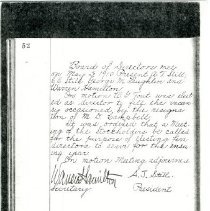 52
Board of Directors met
on May 2 1910 Present A. T. Still,
C. E. Still, George M. Laughlin and
Warren Hamilton.
On motion W. D. was elect-
ed as director to fill the vacan-
cy occasioned by the resigna-
tion of M. D. Campbell.
It was ordered that a meet-
ing of the stockholders be called
for the purpose of electing two
directors to serve for the ensu-
ing year.
On motion Meeting adjourned
Warren Hamilton
Secretary.
A. T. Still.
President